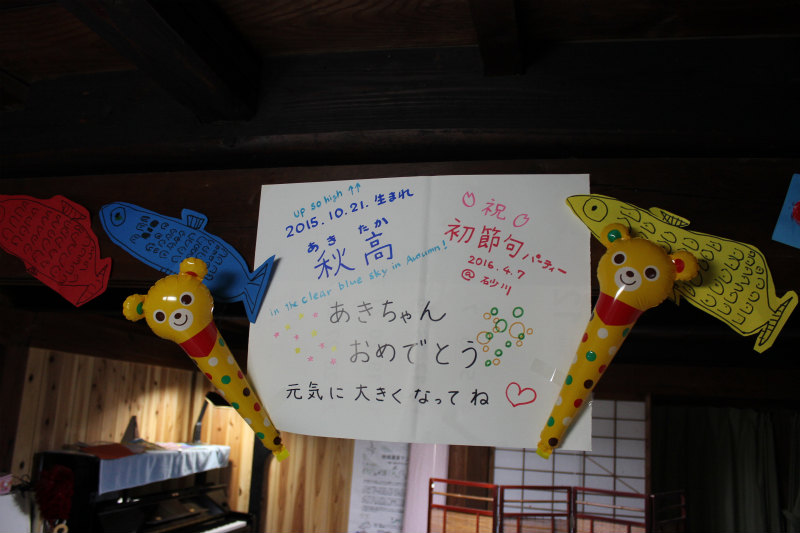 up so high ↑↑
2015.10.21.生まれ
あき たか
秋高
in the clear blue sky in Autumn!
祝
初節句パーティー
2016.4.7
@砂川
あきちゃん
おめでとう
元気に大きくなってね♡